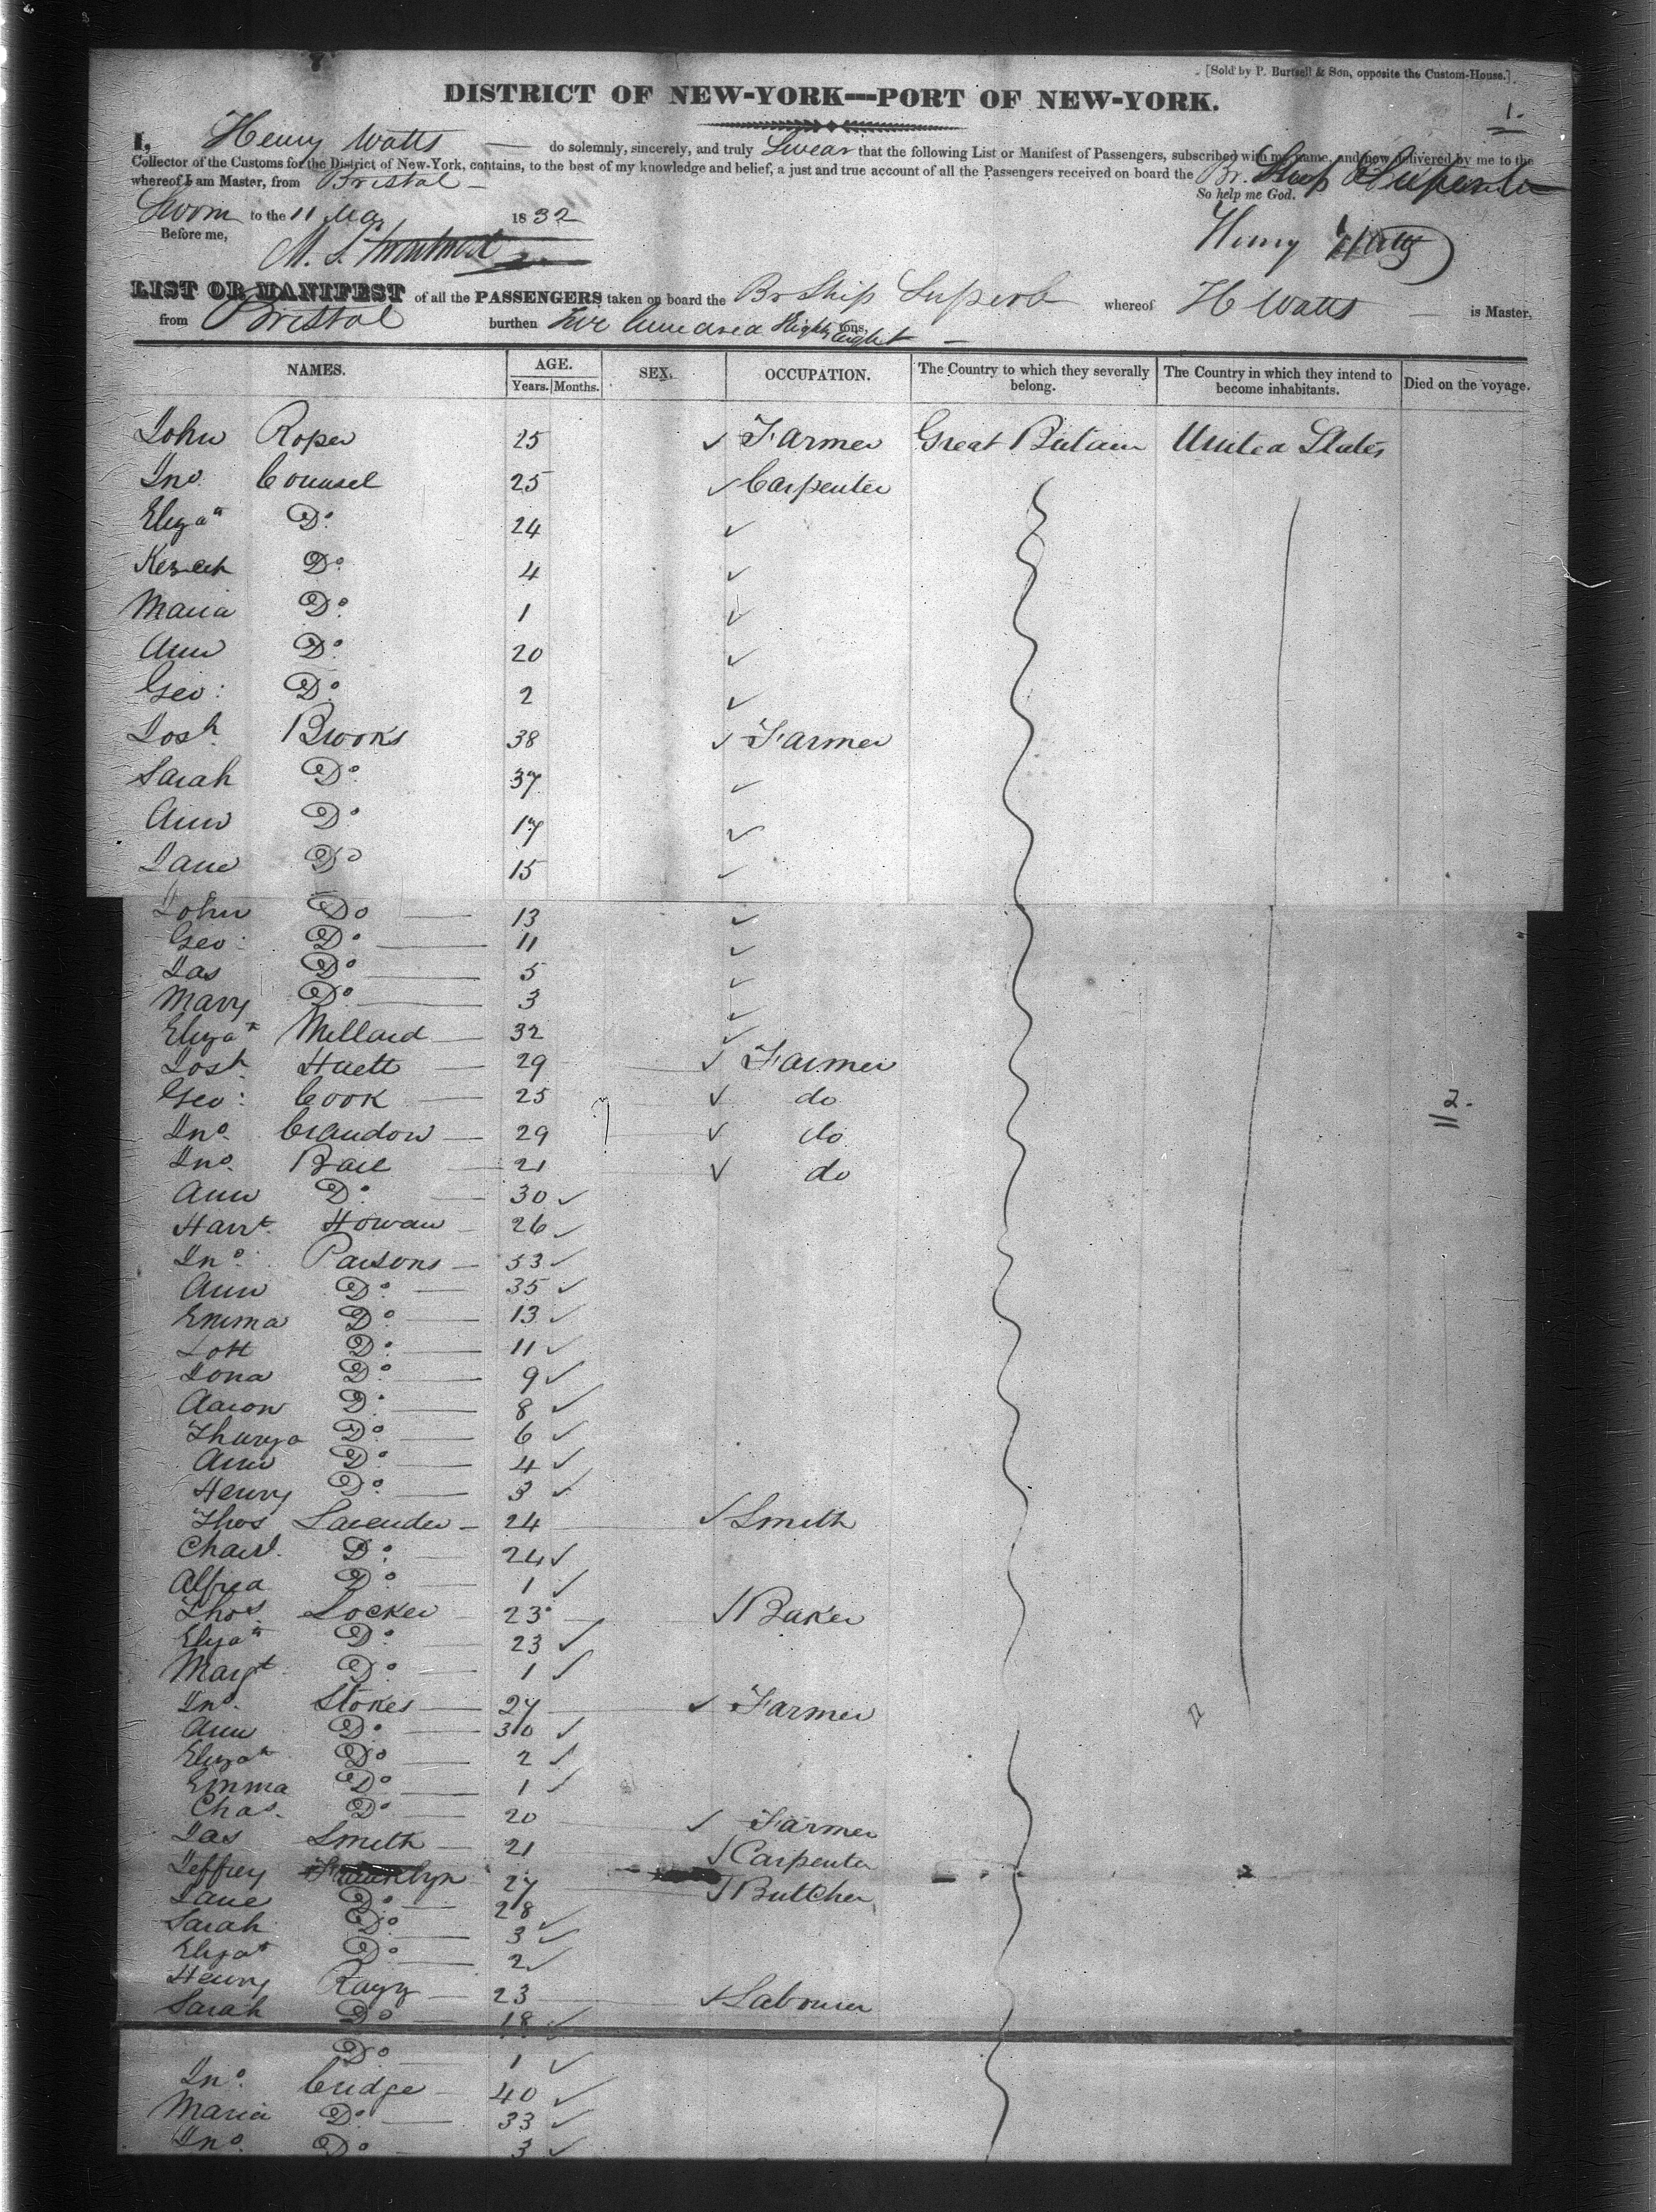 [Sold by P. Burtsell & Son, opposite the Custom-House.]
DISTRICT OF NEW-YORK—PORT OF NEW-YORK.
1.
I, Henry Watts do solemnly, sincerely, and truly Swear that the following List or Manifest of Passengers, subscribed with my name, and now delivered by me to the
Collector of the Customs for the District of New-York, contains, to the best of my knowledge and belief, a just and true account of all the Passengers received on board the Br. Ship Superb
whereof I am Master, from Bristol
So help me God.
Sworn to the 11 May 1832
Before me,
Henry Watts
LIST OR MANIFEST of all the PASSENGERS taken on board the Br Ship Superb whereof H Watts is Master,
from Bristol burthen Hundred Eighty Eight tons,
NAMES. AGE. SEX. OCCUPATION. The Country to which they severally belong. The Country in which they intend to become inhabitants. Died on the voyage.
Years. Months.
John Roper 25 Farmer Great Britain United States
Jno. Counsel 25 Carpenter
Elizath Do. 24
Keziah Do. 4
Maria Do. 1
Ann Do. 20
Geo: Do. 2
Josh Brooks 38 Farmer
Sarah Do. 37
Ann Do. 17
Jane Do 15
John Do 13
Geo: Do. 11
Jas Do. 5
Mary Do. 3
Elizath Millard 32
Josh Huett 29 Farmer
Geo: Cook 25 do
2.
Jno. Crandon 29 do
Jno. Bail 21 do
Ann Do. 30
Harrt. Howan 26
Jno. Parsons 33
Ann Do. 35
Emma Do. 13
Lott Do. 11
Jona Do. 9
Aaron Do. 8
Thurza Do. 6
Ann Do. 4
Henry Do. 3
Thos Lavender 24 Smith
Charl. Do. 24
Alfred Do. 1
Thos. Locker 23 Baker
Elizath Do. 23
Margt Do. 1
Jno. Stokes 27 Farmer
Ann Do. 30
Elizath Do 2
Emma Do. 1
Chas. Do. 20 Farmer
Jas Smith 21 Carpenter
Jeffrey 27 Butcher
Jane Do. 28
Sarah Do. 3
Elizath Do. 2
Henry 23 Labourer
Sarah Do 18
Do. 1
Jno. Cridge 40
Maria Do. 33
Jno. Do. 3